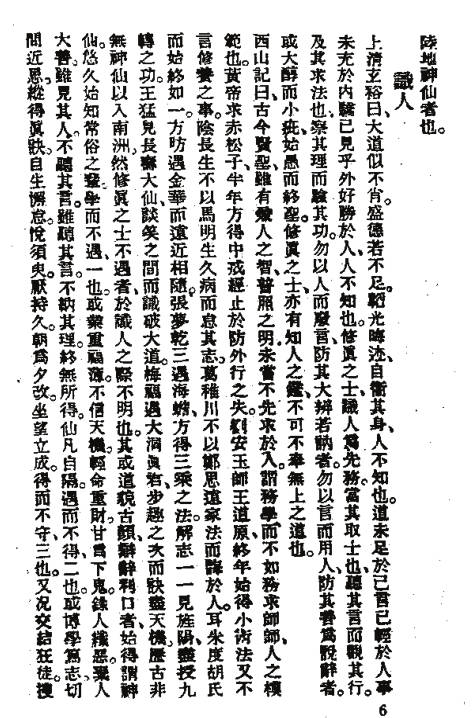 陸地神仙者也。
識人
上清玄格曰、大道似不肖。盛德若不足。韜光晦迹、自衞其身、人不知也。道未足於己、言已輕於人、事
未充於內、驕已見乎外、好勝於人、人不知也。修眞之士、識人爲先務。當其取士也、聽其言而觀其行。
及其求法也、察其理而驗其功。勿以人而廢言、防其大辨若訥者。勿以言而用人、防其善爲說辭者。
或大醇而小疵、始愚而終聖。修眞之士、亦有知人之鑑、不可不奉無上之道也。
西山記曰、古今賢聖、雖有燭人之智、普照之明、未嘗不先求於人。謂務學而不如務求師、師人之模
範也。黃帝求赤松子、半年方得中戒經、止於防外行之失。劉安王師王道、原終年始得小術法、又不
言修養之事。陰長生不以馬明生久病而怠其志。葛稚川不以鄭思遠家法而辭於人耳。朱度胡氏
而始終如一、方昉遇金華而遠近相隨。張夢乾三遇海蟾、方得三乘之法。解志一一見旌陽、盡授九
轉之功。王猛見長壽大仙、談笑之間而識破大道。梅福遇大洞眞君、步趨之次而訣盡天機。歷古非
無神仙以入南洲、然修眞之士不遇者、於識人之際不明也。其或道貌古顏、辯辭利口者、始得謂神
仙、悠久始知常俗之輩、學而不遇、一也。或業重福薄、不信天機、輕命重財、甘爲下鬼、錄人纖惡、棄人
大善、雖見其人、不聽其言、雖聽其言、不納其理、終無所得、仙凡自隔、遇而不得、二也。或博學篤志、切
問近思、縱得眞訣、自生懈怠、悅須臾、厭持久、朝爲夕改、坐望立成、得而不守、三也。又况交結狂徒、搜
6